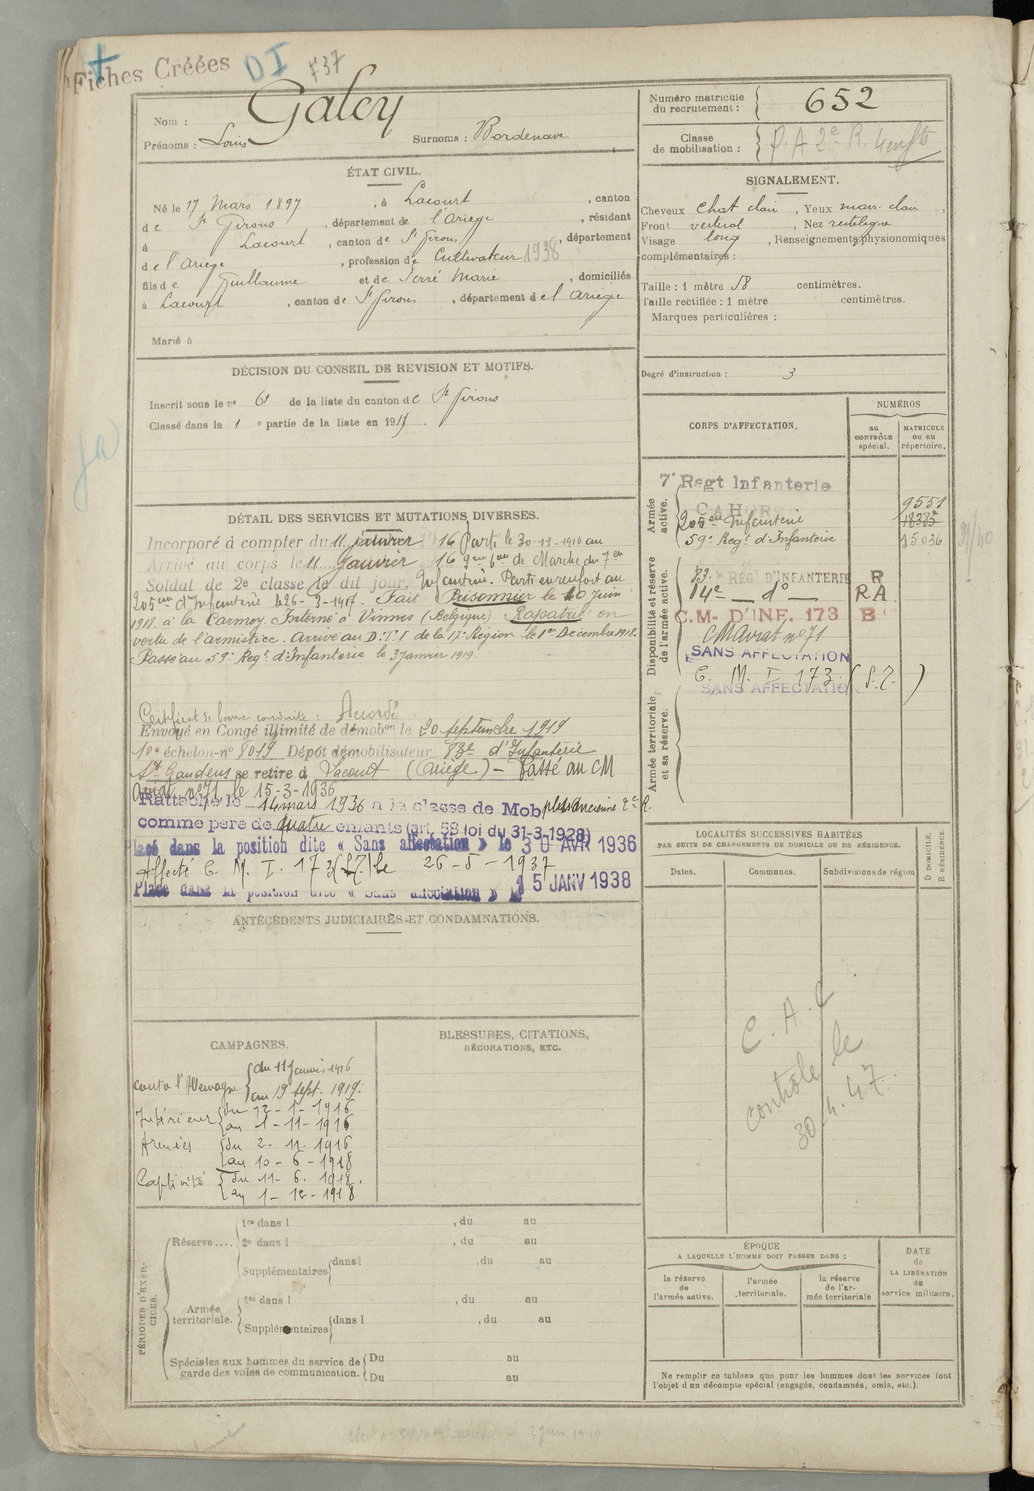 Fiches Créées DI 737
Nom : Galey
Prénoms : Louis Surnoms : Bordenave
Numéro matricule du recrutement : 652
Classe de mobilisation : P. A 2e R.
ÉTAT CIVIL.
Né le 17 Mars 1897, à Lacourt, canton
de St Girons, département de l'Ariège, résident
à Lacourt, canton de St Girons, département
de l'Ariège, profession de Cultivateur 1938
fils de Guillaume et de Serré Marie, domiciliés
à Lacourt, canton de St Girons, département de l'Ariège
Marié à
SIGNALEMENT.
Cheveux chat clair, Yeux mar. clair,
Front vertical, Nez rectiligne
Visage long, Renseignements physionomiques
complémentaires :
Taille : 1 mètre 58 centimètres.
Taille rectifiée : 1 mètre centimètres.
Marques particulières :
Degré d'instruction : 3
DÉCISION DU CONSEIL DE REVISION ET MOTIFS.
Inscrit sous le n° 61 de la liste du canton de St Girons
Classé dans la 1e partie de la liste en 191
CORPS D'AFFECTATION.
NUMÉROS
au CONTRÔLE spécial.
MATRICULE ou au répertoire.
Armée active.
7e Regt Infanterie
CAHORS 9551
205eme Infanterie 18385
59e Regt d'Infanterie 15036
Disponibilité et réserve de l'armée active.
83. REGt D'INFANTERIE R
14e — do — RA
C.M. D'INF. 173 B
CM Ariat n° 71
SANS AFFECTATION
C. M. I 173 (S.P.)
SANS AFFECTATION
Armée territoriale et sa réserve.
DÉTAIL DES SERVICES ET MUTATIONS DIVERSES.
Incorporé à compter du 11 janvier 1916 Parti le 30-11-1916 au
Arrivé au corps le 11 Janvier 16 9eme Bon de Marche du 7em
Soldat de 2e classe le dit jour. Infanterie. Parti en renfort au
205eme d'Infanterie le 26-3-1917. Fait Prisonnier le 10 juin
1918 à la Carmoy. Interné à Vinnes (Belgique) Rapatrié en
vertu de l'armistice. Arrivé au D.T.I de la 17e Région le 1er Décembre 1918.
Passé au 59e Regt d'Infanterie le 3 Janvier 1919.
Certificat de bonne conduite : Accordé
Envoyé en Congé illimité de démobon le 20 septembre 1919
10e échelon n° 8019 Dépôt démobilisateur 83e d'Infanterie
St Gaudens se retire à Lacourt (Ariège) - Passé au CM
Ariat n° 71 le 15-3-1936
Rattaché le 14 mars 1936 à la classe de Mob plus ancienne 2e R.
comme père de quatre enfants (art. 58 loi du 31-3-1928)
Placé dans la position dite « Sans affectation » le 30 AVR 1936
Affecté C. M. I. 173 (S.P.) le 26-5-1937
Placé dans la position dite « Sans affectation » le 15 JANV 1938
LOCALITÉS SUCCESSIVES HABITÉES
PAR SUITE DE CHANGEMENTS DE DOMICILE OU DE RÉSIDENCE.
Dates. Communes. Subdivisions de région D. DOMICILE. R. RÉSIDENCE.
C. A. C
contrôle le
30.4.47.
ANTÉCÉDENTS JUDICIAIRES ET CONDAMNATIONS.
CAMPAGNES.
contre l'Allemagne du 11 Janvier 1916
au 19 sept. 1919.
Intérieur du 12-1-1916
au 1-11-1916
Armées du 2-11-1916
au 10-6-1918
Captivité du 11-6-1918.
au 1-12-1918
BLESSURES, CITATIONS,
DÉCORATIONS, ETC.
PÉRIODES D'EXERCICES.
Réserve.... 1re dans l , du au
2e dans l , du au
Supplémentaires dans l , du au
Armée territoriale. 1re dans l , du au
Supplémentaires dans l , du au
Spéciales aux hommes du service de garde des voies de communication. Du au
Du au
ÉPOQUE
A LAQUELLE L'HOMME DOIT PASSER DANS :
la réserve de l'armée active.
l'armée territoriale.
la réserve de l'armée territoriale
DATE de LA LIBÉRATION du service militaire.
Ne remplir ce tableau que pour les hommes dont les services font
l'objet d'un décompte spécial (engagés, condamnés, omis, etc.).